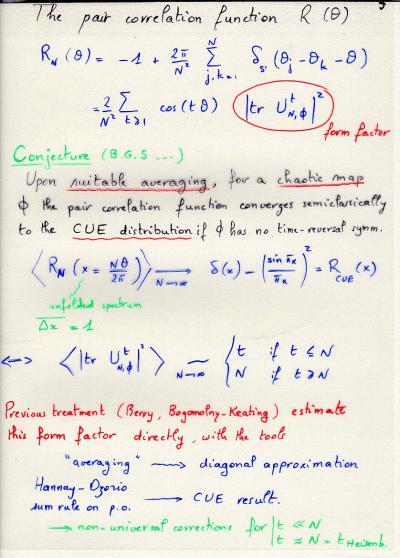 5
The pair correlation function R(θ)
R_N(θ) = -1 + 2π/N² Σ_{j,k=1}^{N} δ_{S¹}(θ_j - θ_k - θ)
= 2/N² Σ_{t≥1} cos(tθ) |tr U^t_{N,ϕ}|²
form factor
Conjecture (B.G.S ...)
Upon suitable averaging, for a chaotic map
ϕ the pair correlation function converges semiclassically
to the CUE distribution if ϕ has no time-reversal symm.
⟨R_N(x = Nθ/2π)⟩ →_{N→∞} δ(x) - (sin πx/πx)² = R_CUE(x)
unfolded spectrum
Δx = 1
↔ ⟨|tr U^t_{N,ϕ}|²⟩ ~_{N→∞} { t if t ≤ N
N if t ≥ N
Previous treatment (Berry, Bogomolny-Keating) estimate
this form factor directly, with the tools
"averaging" → diagonal approximation
Hannay-Ozorio
sum rule on p.o. → CUE result.
→ non-universal corrections for | t ≪ N
t ≈ N = t_Heisenb.